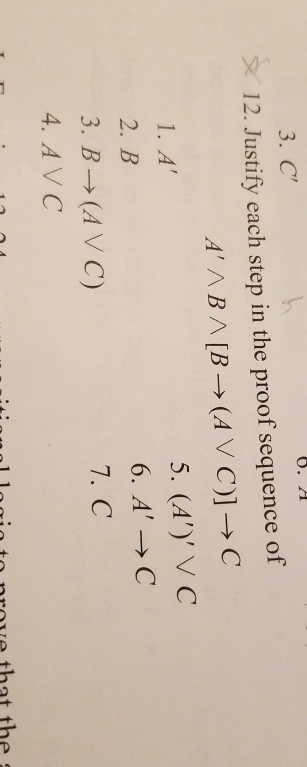 3. C'
6. A
12. Justify each step in the proof sequence of
A' ∧ B ∧ [B → (A ∨ C)] → C
1. A'
2. B
3. B → (A ∨ C)
4. A ∨ C
5. (A')' ∨ C
6. A' → C
7. C
logic to prove that the